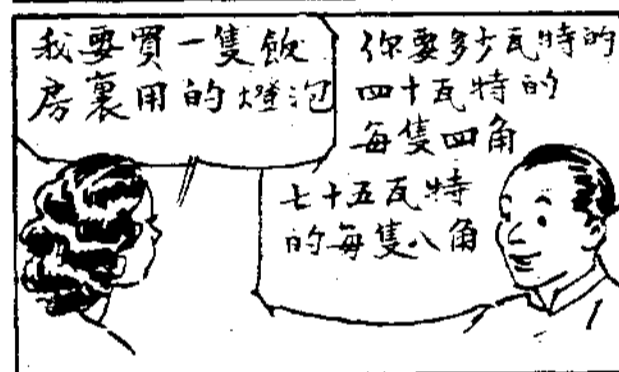 我要買一隻飯
房裏用的燈泡
你要多少瓦特的
四十瓦特的
每隻四角
七十五瓦特
的每隻八角